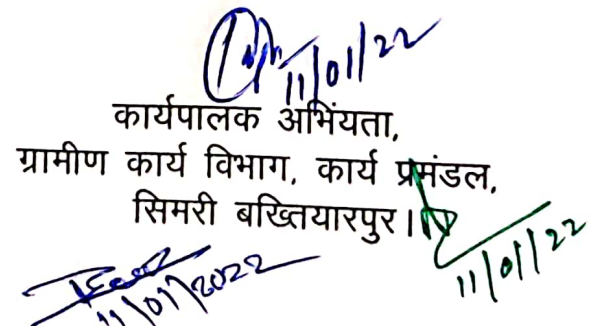 11/01/22
कार्यपालक अभिंयता,
ग्रामीण कार्य विभाग, कार्य प्रमंडल,
सिमरी बख्तियारपुर।
11/01/22
11/01/2022